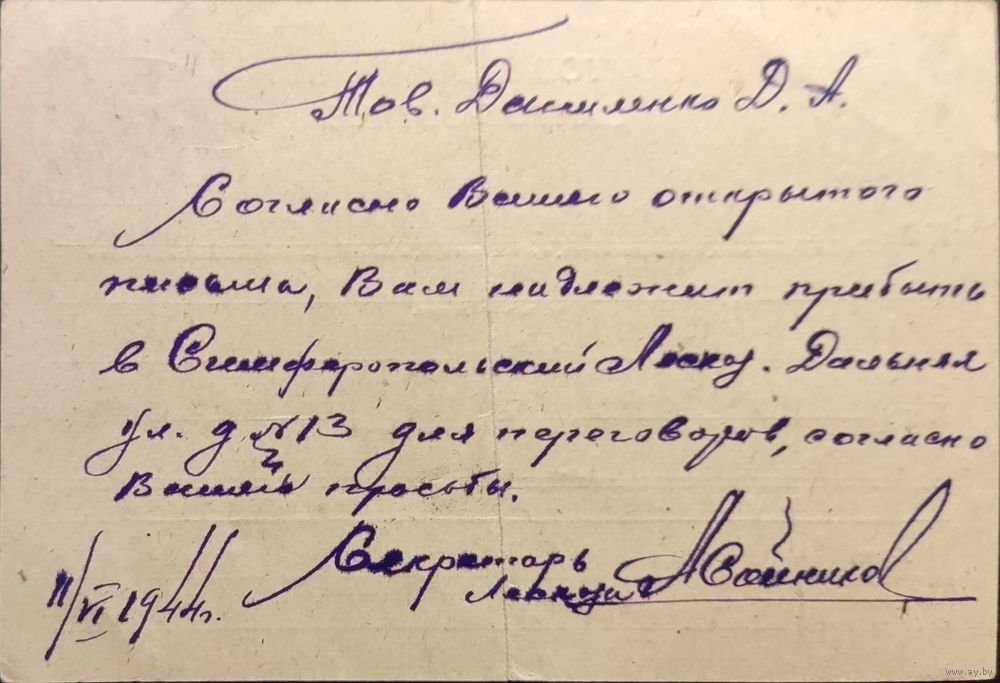 Тов. Даниленко Д. А.
Согласно Вашего открытого
письма, Вам надлежит прибыть
в Симферопольский Лесхоз. Дальняя
ул. д № 13 для переговоров, согласно
Вашей просьбы.
Секретарь
Лесхоза
11/VI 1944г.
www.ay.by